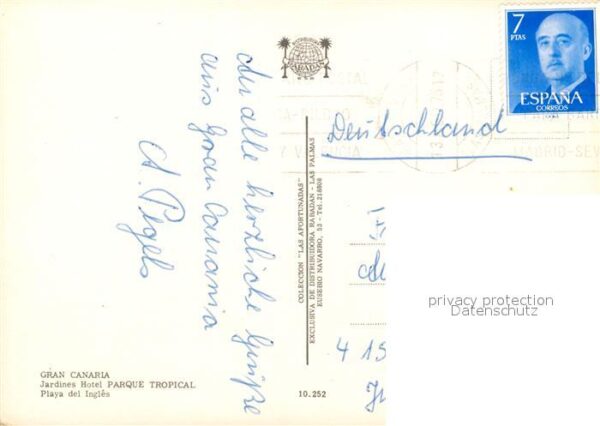 An alle herzliche Grüße
aus Gran Canaria
A. Pegels
GRAN CANARIA
Jardines Hotel PARQUE TROPICAL
Playa del Inglés
RABADAN
COLECCION "LAS AFORTUNADAS"
EXCLUSIVA DE DISTRIBUIDORA RABADAN - LAS PALMAS
EUSEBIO NAVARRO, 53 - Tel. 218808
10.252
7
PTAS
ESPAÑA
CORREOS
MADRID-SEV
Deutschland
An
4 15
privacy protection
Datenschutz